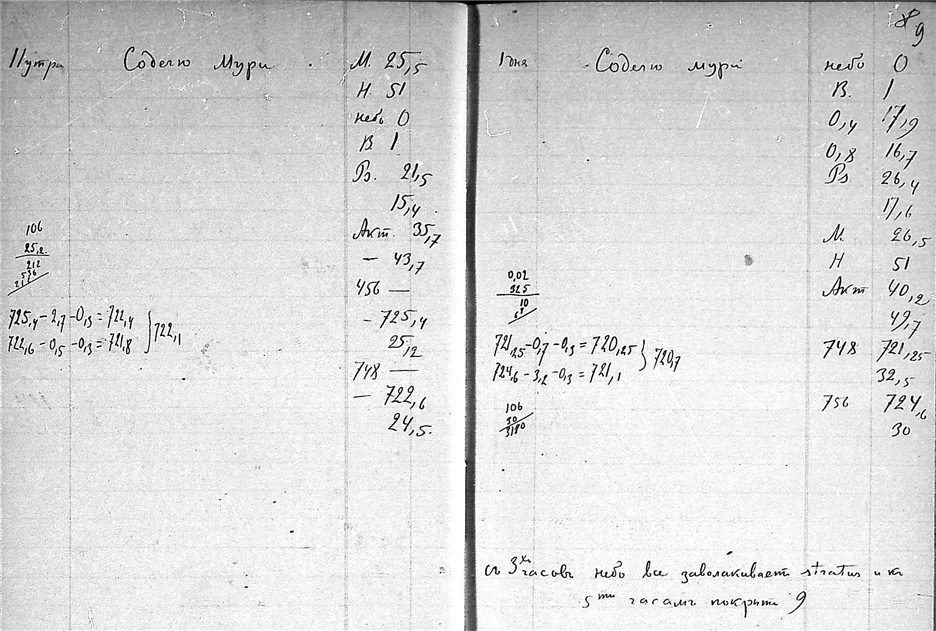 11 утра Содего Мури . М. 25,5
Н. 51
небо 0
В. 1
Рs. 21,5
15,4.
Акт. 35,7
— 43,7
456 —
— 725,4
25,2
748 —
— 722,6
24,5.
106
25,2
212
725,4 - 2,7 - 0,3 = 722,4
722,6 - 0,5 - 0,3 = 721,8 } 722,1
9
1 дня Содего мури небо 0
В. 1
0,4 17,9
0,8 16,7
Рs 26,4
17,6
М. 26,5
Н 51
Акт 40,2
49,7
748 721,25
32,5
756 724,6
30
0,02
325
10
721,25 - 0,7 - 0,3 = 720,25
724,6 - 3,2 - 0,3 = 721,1 } 720,7
106
30
3180
съ 3хъ часовъ небо все заволакивает stratus и къ
5ти часамъ покрыти 9